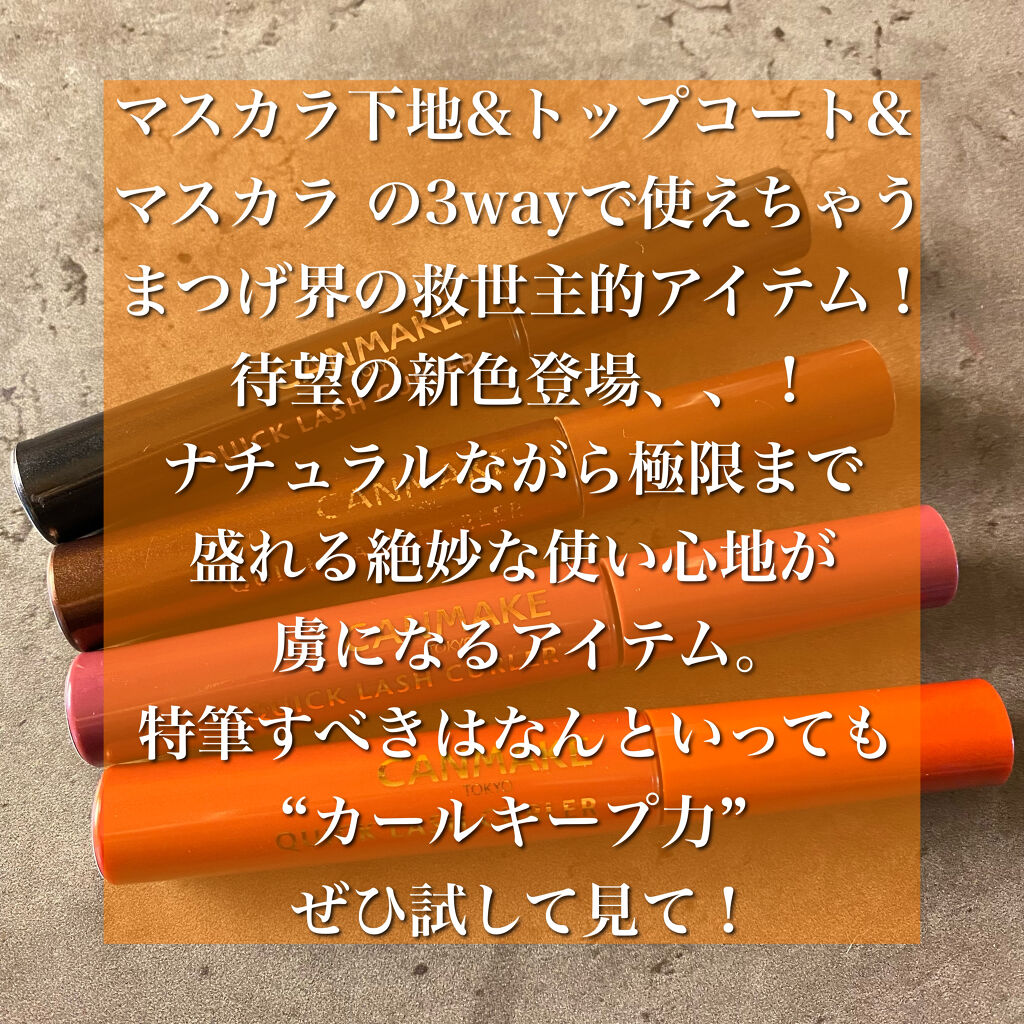 マスカラ下地&トップコート&
マスカラ の3wayで使えちゃう
まつげ界の救世主的アイテム！
待望の新色登場、、！
ナチュラルながら極限まで
盛れる絶妙な使い心地が
虜になるアイテム。
特筆すべきはなんといっても
“カールキープ力”
ぜひ試して見て！
CANMAKE
TOKYO
QUICK LASH CURLER
CANMAKE
CANMAKE
TOKYO
QUICK LASH CURLER
CANMAKE
TOKYO
QUICK LASH CURLER